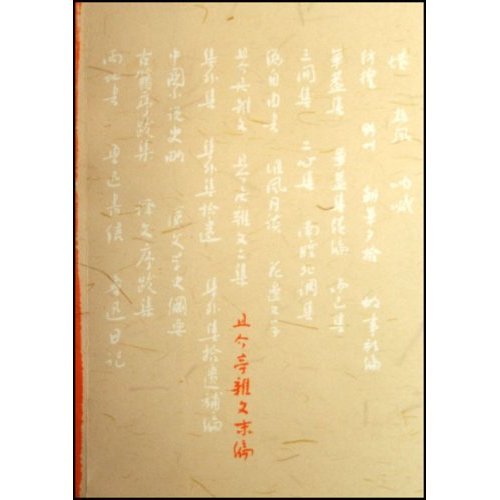 墳 熱風 呐喊
彷徨 野草 朝華夕拾 故事新編
華蓋集 華蓋集續編 而已集
三閒集 二心集 南腔北調集
偽自由書 准風月談 花邊文学
且介亭雜文 且介亭雜文二集 且介亭雜文末编
集外集 集外集拾遺 集外集拾遺補編
中國小说史略 漢文学史綱要
古籍序跋集 譯文序跋集
兩地書 魯迅書信 魯迅日记